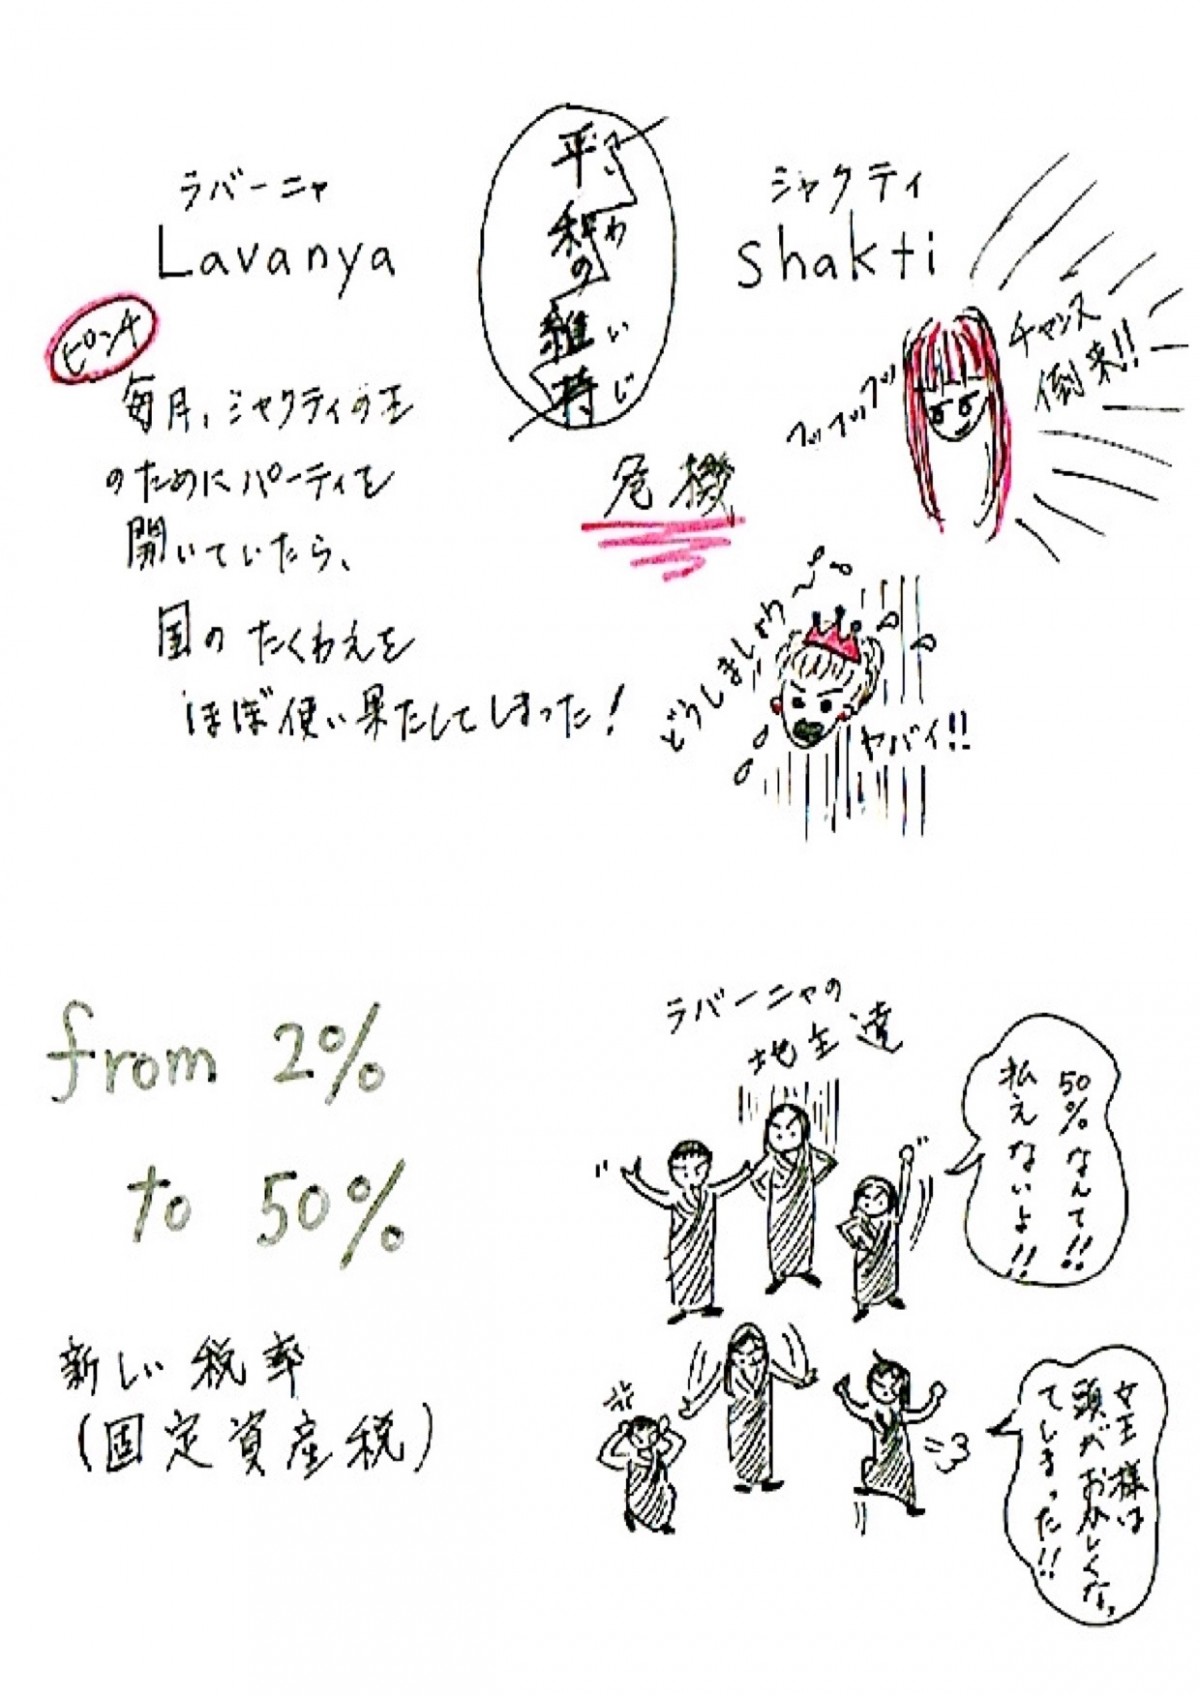 ラバーニャ
Lavanya
平和の維持
わ
いじ
シャクティ
shakti
ピンチ
毎月、シャクティの王
のためにパーティを
開いていたら、
国の たくわえを
ほぼ使い果たしてしまった!
危機
フッフッフッ
チャンス
倒来!!
どうしましょう〜
ヤバイ!!
from 2%
to 50%
新しい税率
(固定資産税)
ラバーニャの
地主達
50%なんて!!
払えないよ!!
女王様は
頭がおかしくなっ
てしまった!!